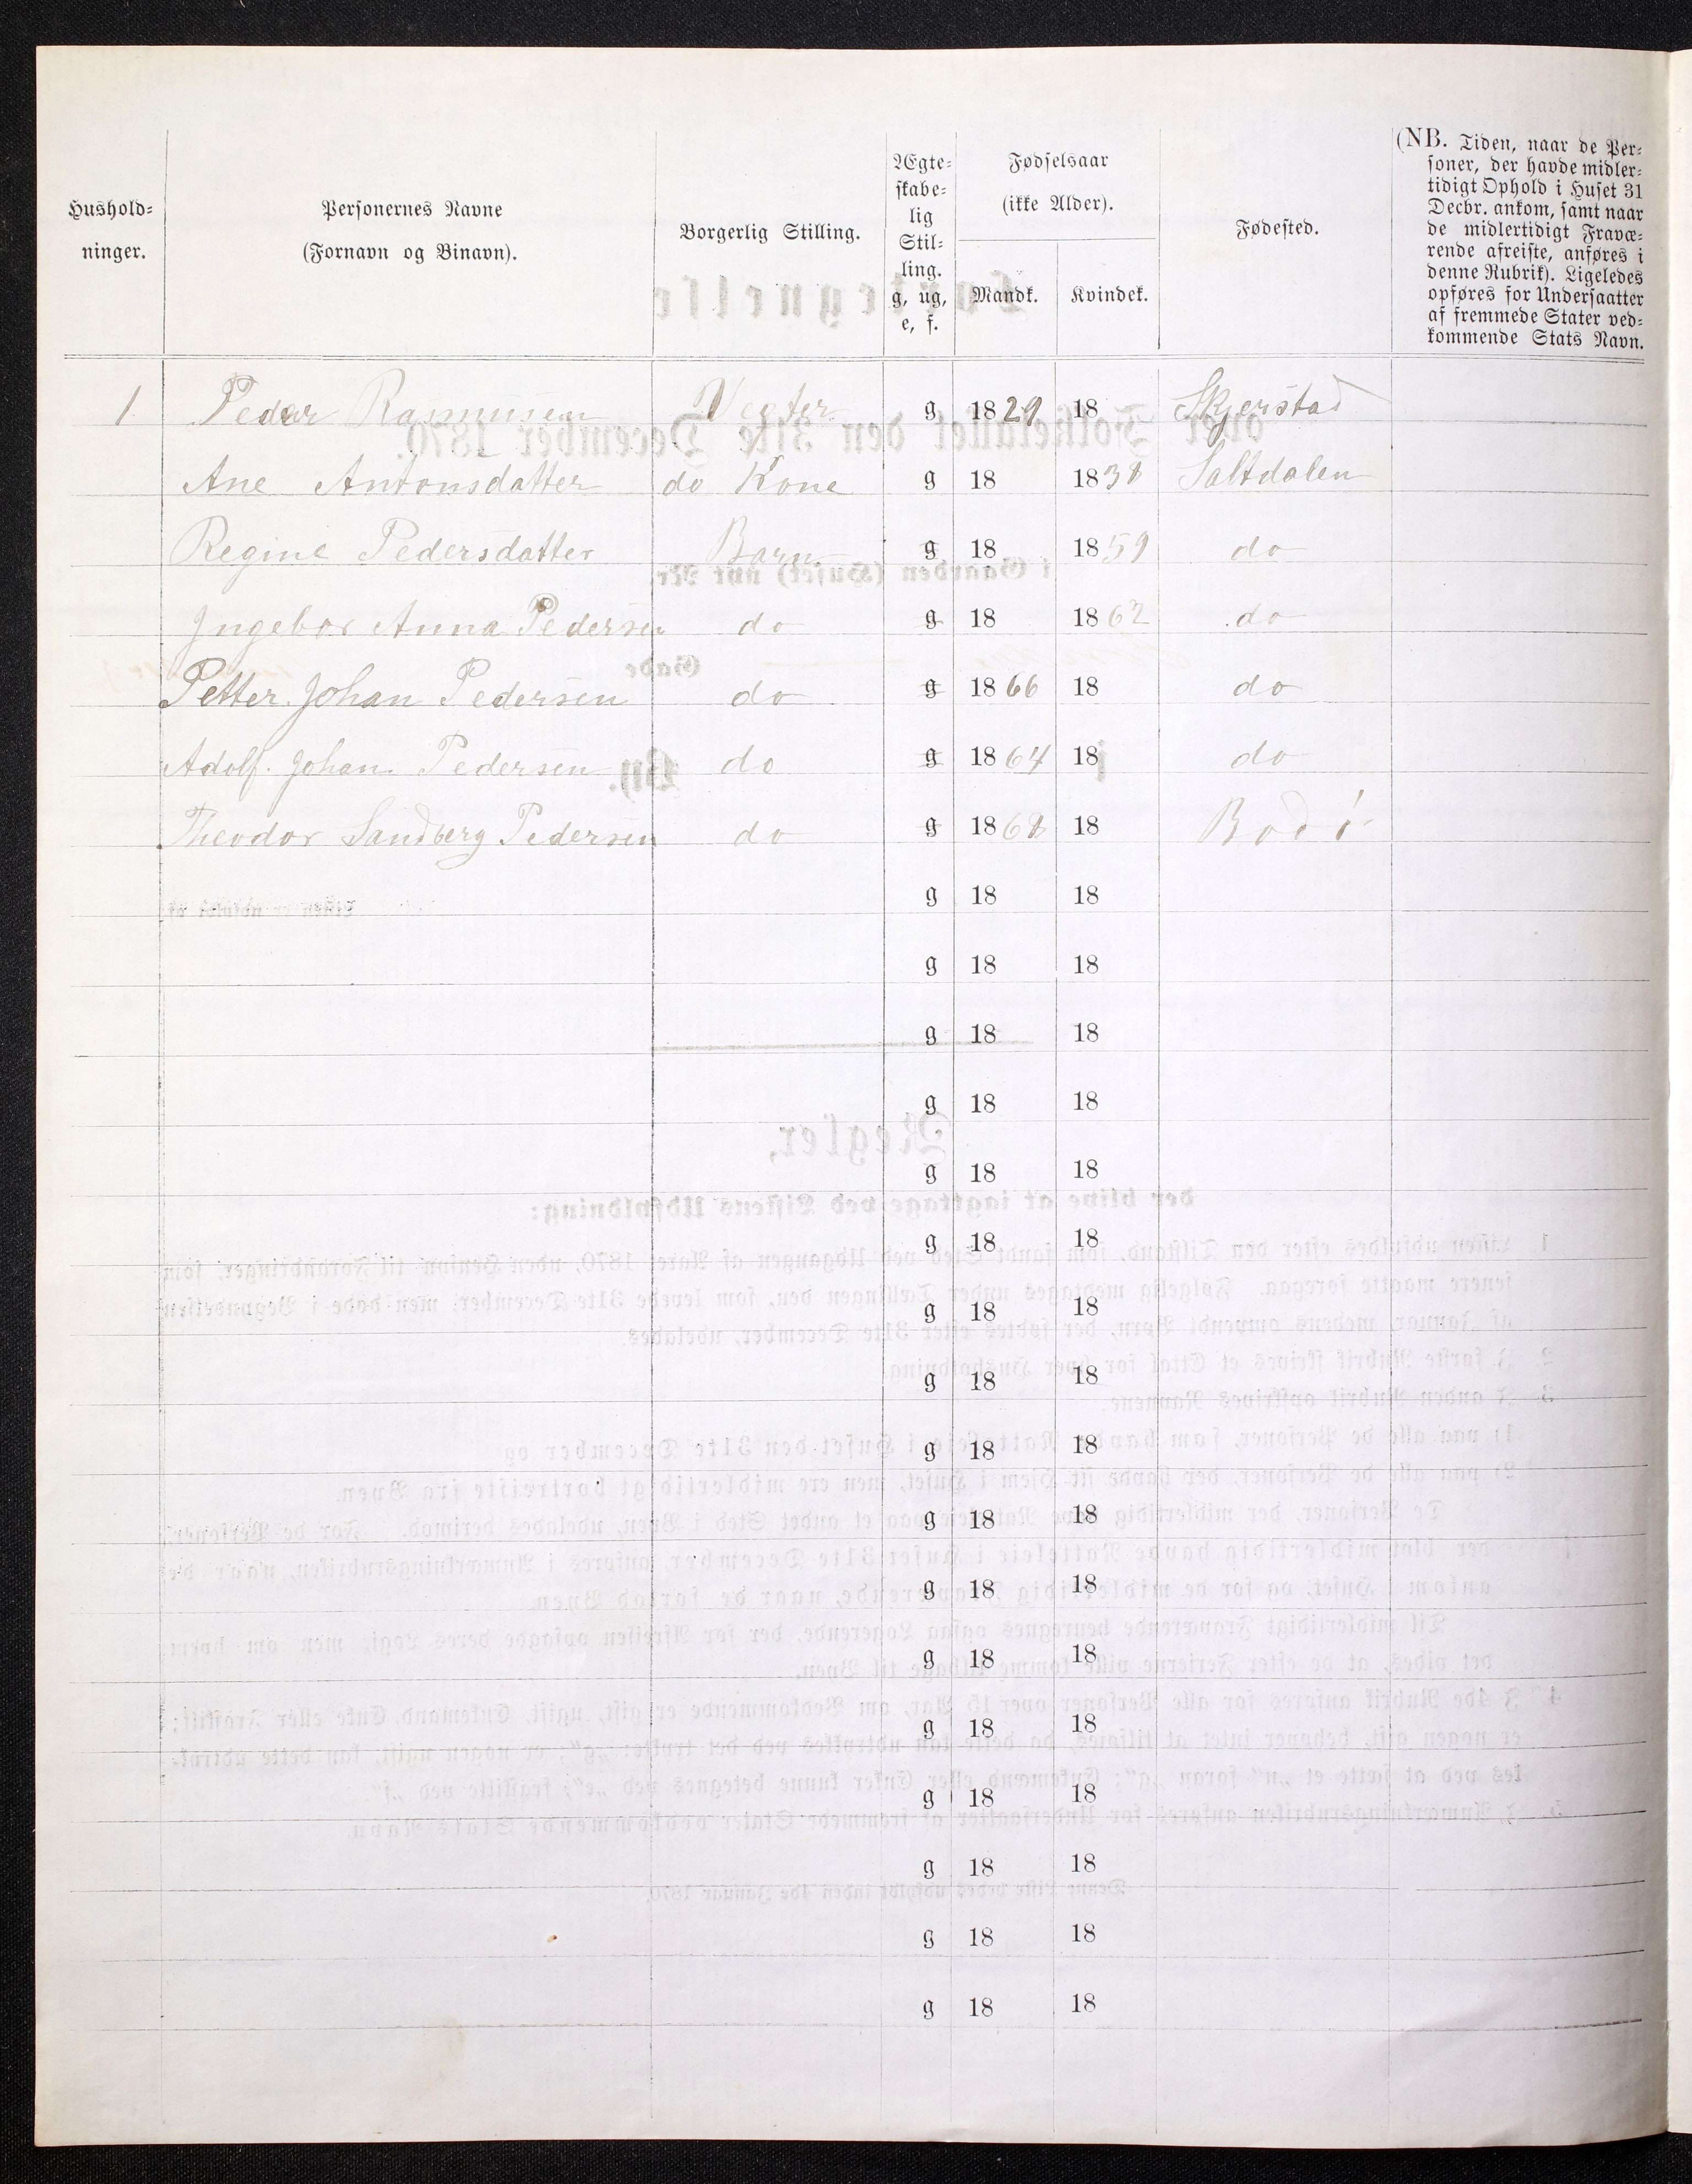 Hushold-
ninger.
Personernes Navne
(Fornavn og Binavn).
Borgerlig Stilling.
Ægte-
skabe-
lig
Stil-
ling.
g, ug,
e, f.
Fødselsaar
(ikke Alder).
Mandk. Kvindek.
Fødested.
(NB. Tiden, naar de Per-
soner, der havde midler-
tidigt Ophold i Huset 31
Decbr. ankom, samt naar
de midlertidigt Fravæ-
rende afreiste, anføres i
denne Rubrik). Ligeledes
opføres for Undersaatter
af fremmede Stater ved-
kommende Stats Navn.
1 Peder Rasmussen Vegter g 1829 18 Skjerstad
Ane Antonsdatter do Kone g 18 1838 Saltdalen
Regine Pedersdatter Barn g 18 1859 do
Ingebor Anna Pedersen do g 18 1862 do
Petter Johan Pedersen do g 1866 18 do
Adolf. Johan Pedersen do g 1864 18 do
Theodor Sandberg Pedersen do g 1868 18 Bodö
g 18 18
g 18 18
g 18 18
g 18 18
g 18 18
g 18 18
g 18 18
g 18 18
g 18 18
g 18 18
g 18 18
g 18 18
g 18 18
g 18 18
g 18 18
g 18 18
g 18 18